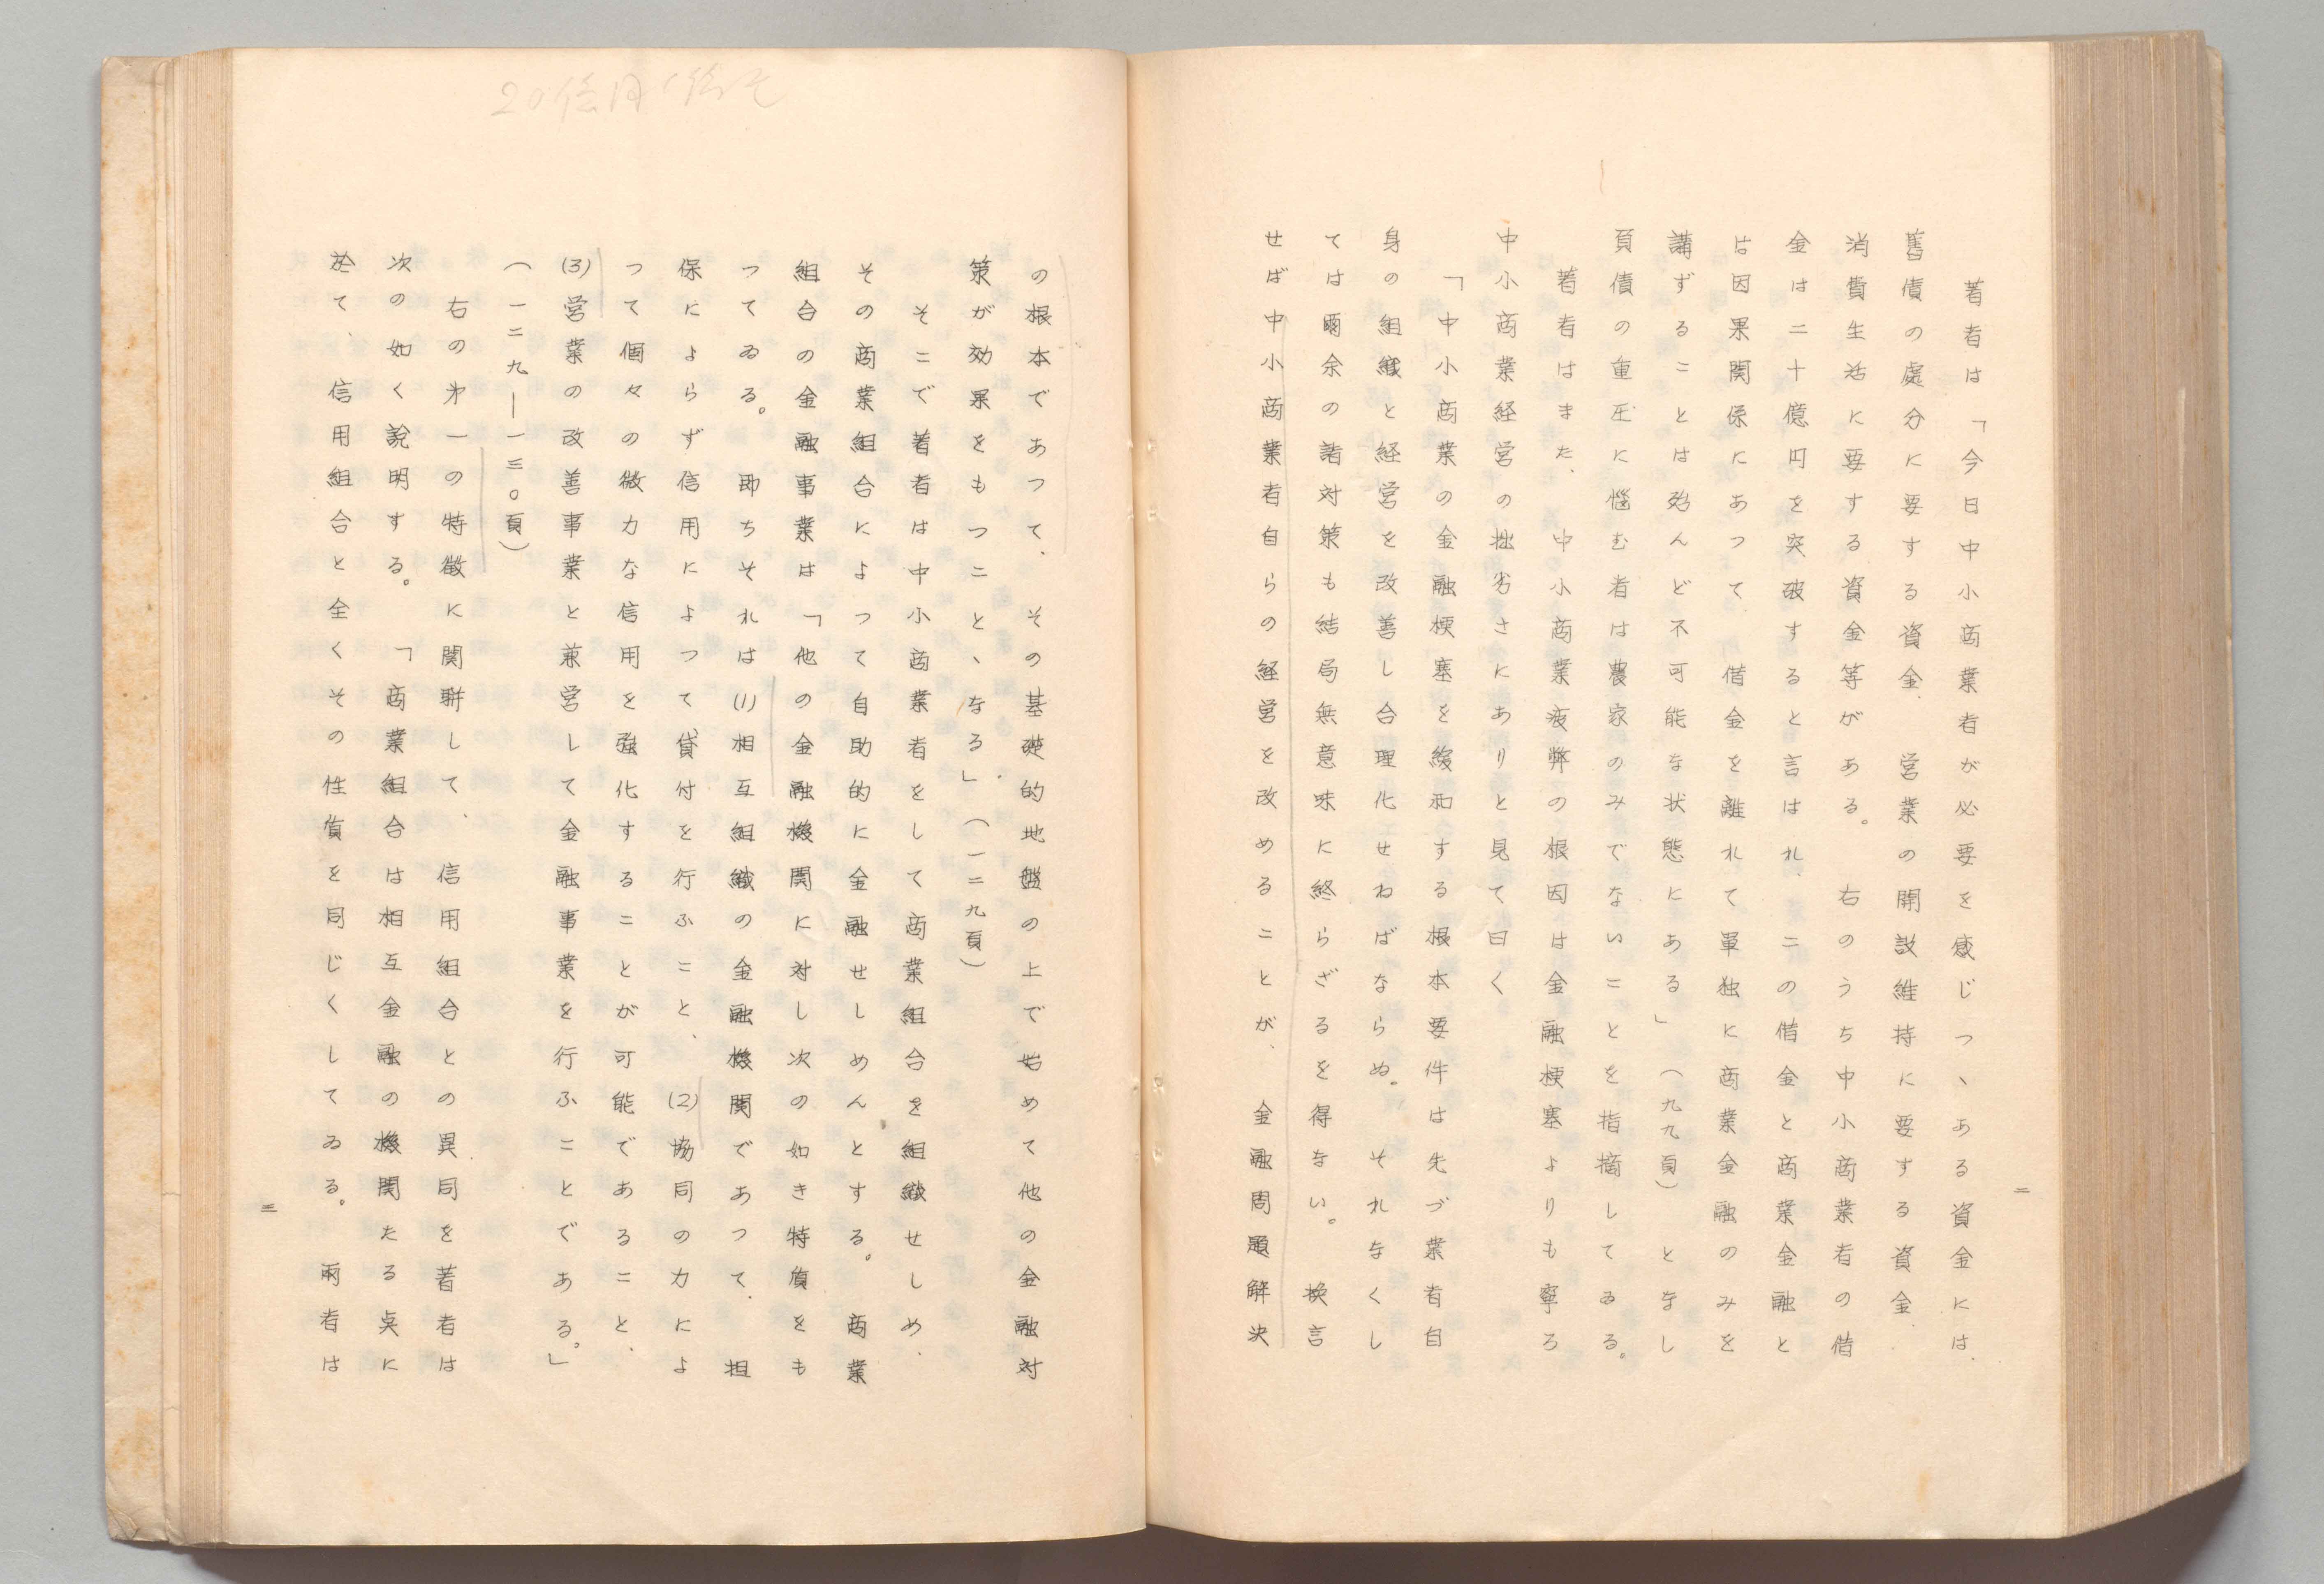 著者は「今日中小商業者が必要を感じつヽある資金には、
舊債の處分に要する資金、営業の開設維持に要する資金、
消費生活に要する資金等がある。右のうち中小商業者の借
金は二十億円を突破すると言はれ、この借金と商業金融と
は因果関係にあつて、借金を離れて単独に商業金融のみを
講ずることは殆んど不可能な状態にある」(九九頁)となし
負債の重圧に悩む者は農家のみでないことを指摘してゐる。
著者はまた、中小商業疲弊の根因は金融梗塞よりも寧ろ
中小商業経営の拙劣さにありと見て曰く
「中小商業の金融梗塞を緩和する根本要件は先づ業者自
身の組織と経営を改善し合理化せねばならぬ。それなくし
ては爾余の諸対策も結局無意味に終らざるを得ない。換言
せば中小商業者自らの経営を改めることが、金融問題解決
二
の根本であつて、その基礎的地盤の上で始めて他の金融対
策が効果をもつこと、なる」(一二九頁)
そこで著者は中小商業者をして商業組合を組織せしめ、
その商業組合によつて自助的に金融せしめんとする。商業
組合の金融事業は「他の金融機関に対し次の如き特質をも
つてゐる。即ちそれは(1)相互組織の金融機関であつて、担
保によらず信用によつて貸付を行ふこと、(2)協同の力によ
つて個々の微力な信用を強化することが可能であること、
(3)営業の改善事業と兼営して金融事業を行ふことである。」
(一二九―一三〇頁)
右の第一の特徴に関聯して、信用組合との異同を著者は
次の如く說明する。「商業組合は相互金融の機関たる点に
於て、信用組合と全くその性質を同じくしてゐる。両者は
三